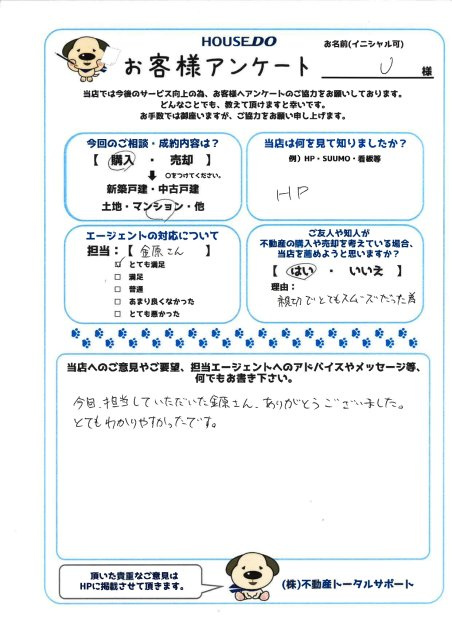 HOUSEDO
お客様アンケート
お名前(イニシャル可)
U 様
当店では今後のサービス向上の為、お客様へアンケートのご協力をお願いしております。
どんなことでも、教えて頂けますと幸いです。
お手数では御座いますが、ご協力をお願い申し上げます。
今回のご相談・成約内容は?
【 購入 ・ 売却 】
○をつけてください。
新築戸建・中古戸建
土地・マンション・他
当店は何を見て知りましたか?
例)HP・SUUMO・看板等
HP
エージェントの対応について
担当:【 金原さん 】
とても満足
満足
普通
あまり良くなかった
とても悪かった
ご友人や知人が
不動産の購入や売却を考えている場合、
当店を薦めようと思いますか?
【 はい ・ いいえ 】
理由:
親切でとてもスムーズだった為
当店へのご意見やご要望、担当エージェントへのアドバイスやメッセージ等、
何でもお書き下さい。
今日、担当していただいた金原さん、ありがとうございました。
とてもわかりやすかったです。
頂いた貴重なご意見は
HPに掲載させて頂きます。
(株)不動産トータルサポート